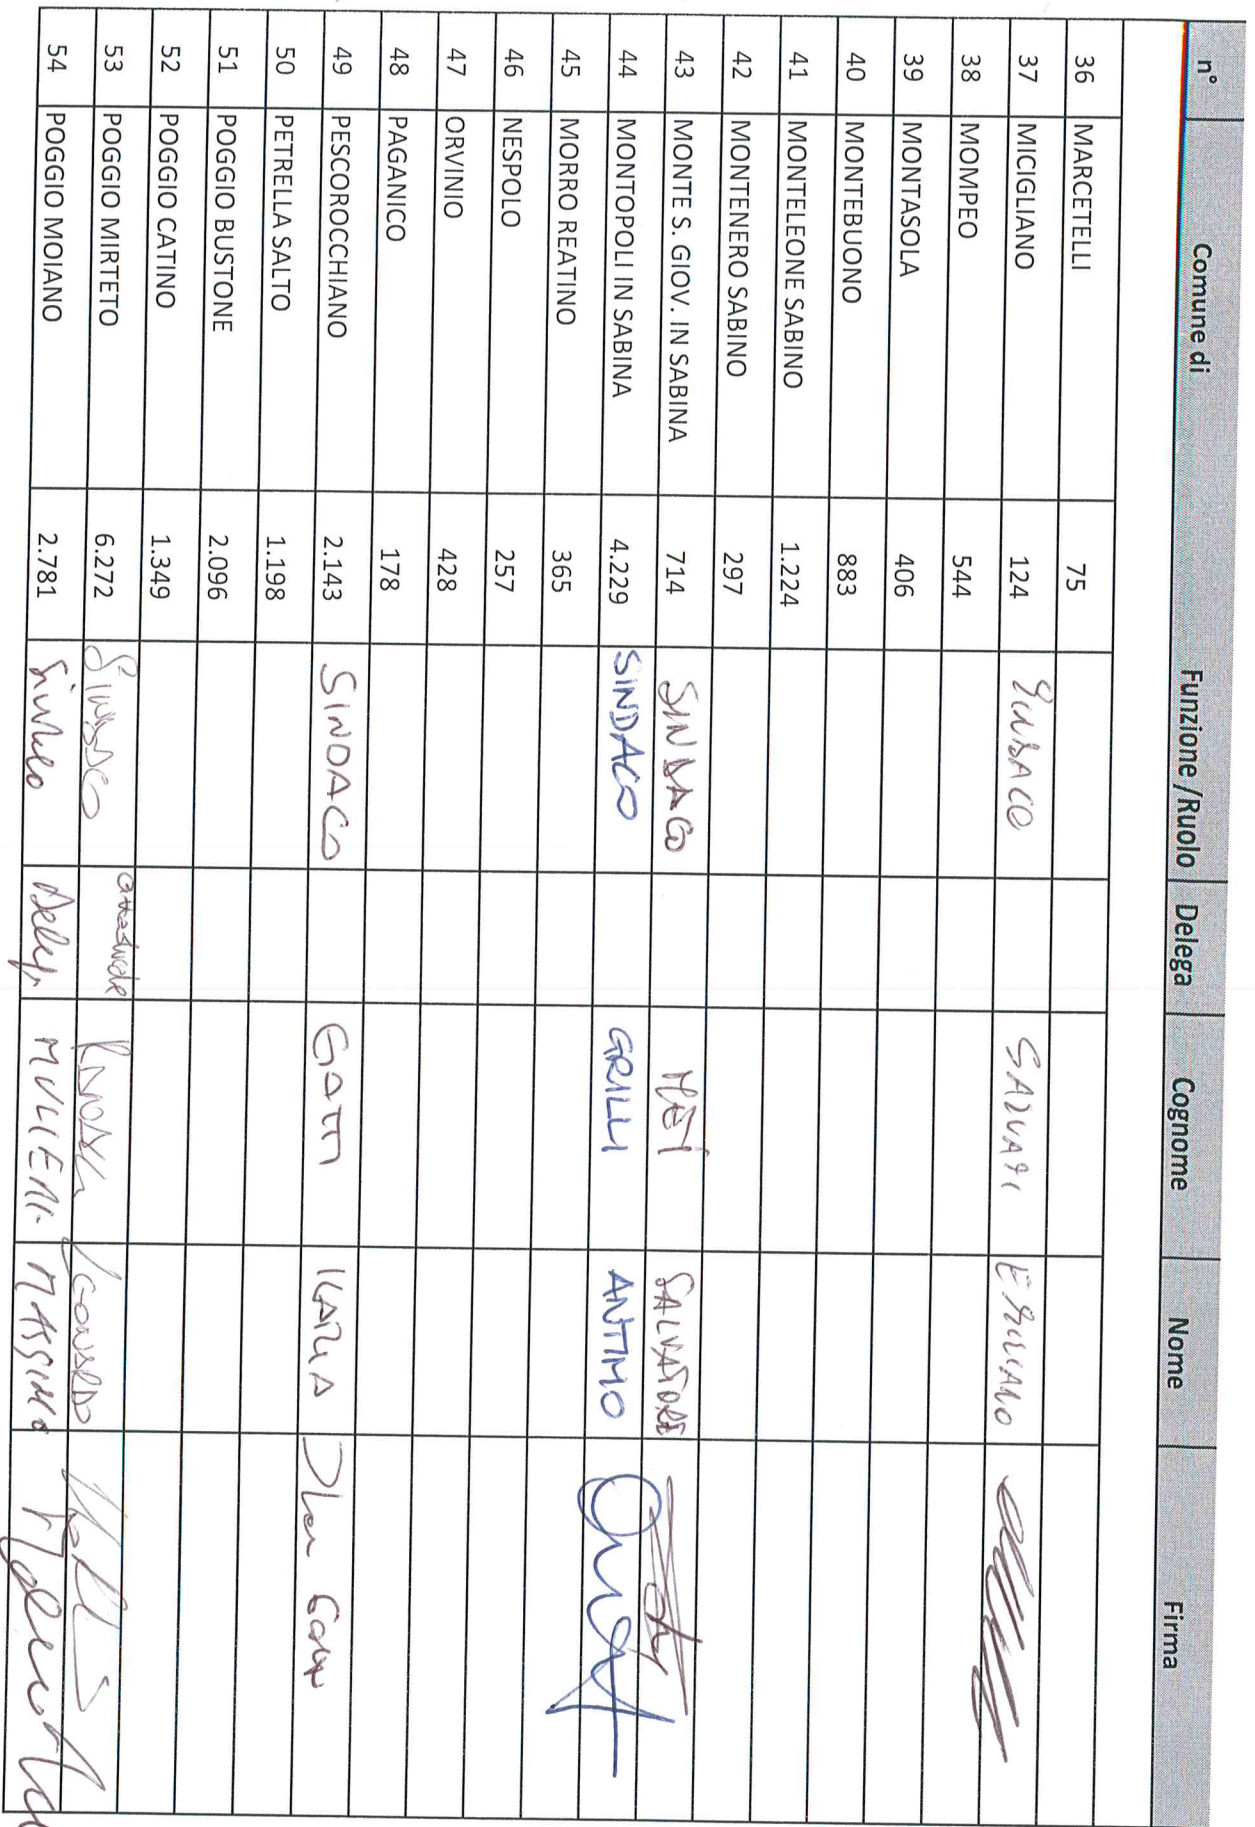 n° Comune di Funzione /Ruolo Delega Cognome Nome Firma
36 MARCETELLI 75
37 MICIGLIANO 124 SINDACO SALVATI EMILIANO
38 MOMPEO 544
39 MONTASOLA 406
40 MONTEBUONO 883
41 MONTELEONE SABINO 1.224
42 MONTENERO SABINO 297
43 MONTE S. GIOV. IN SABINA 714 SINDACO MEI SALVATORE
44 MONTOPOLI IN SABINA 4.229 SINDACO GRILLI ANTIMO
45 MORRO REATINO 365
46 NESPOLO 257
47 ORVINIO 428
48 PAGANICO 178
49 PESCOROCCHIANO 2.143 SINDACO GATTI ILARIA Ilaria Gatti
50 PETRELLA SALTO 1.198
51 POGGIO BUSTONE 2.096
52 POGGIO CATINO 1.349
53 POGGIO MIRTETO 6.272 SINDACO
54 POGGIO MOIANO 2.781 Sindaco MASSIMO